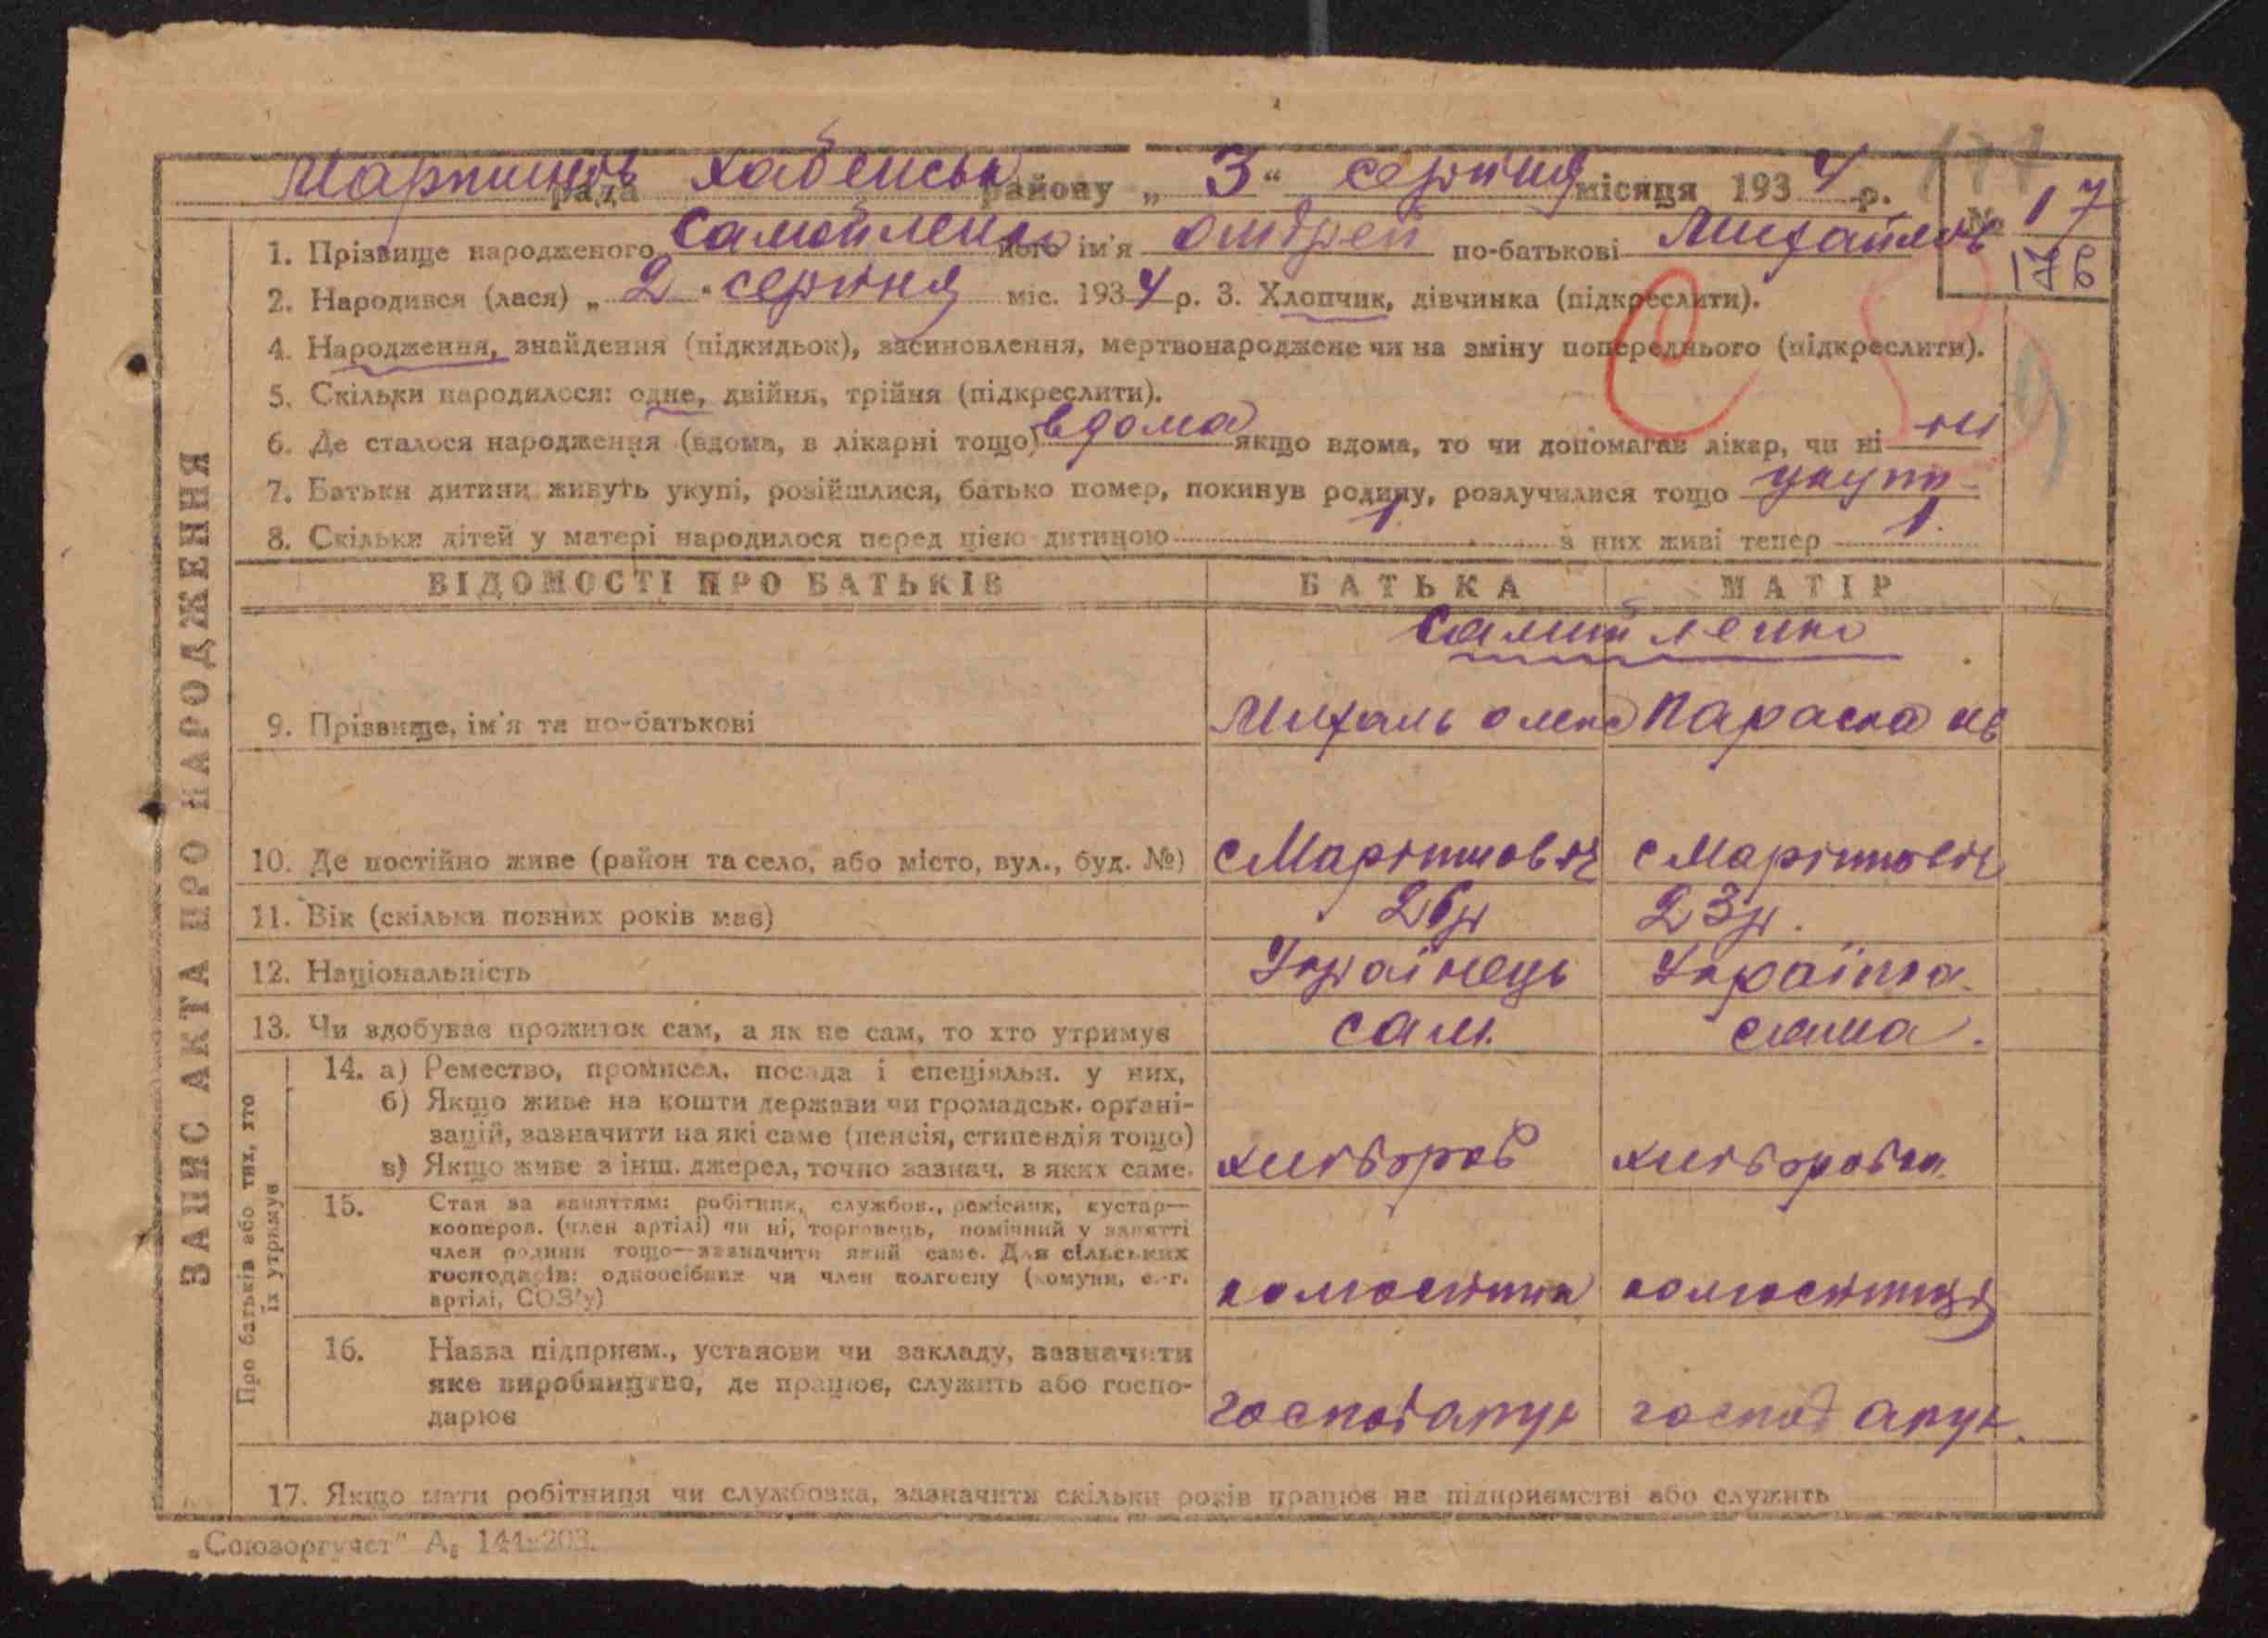 177
рада Хабенськ району „ 3 “ серпня місяця 1934 р. № 17
176
1. Прізвище народженого Самойленко його ім'я Андрей по-батькові Михайлов
2. Народився (лася) „ 2 “ серпня міс. 1934 р. 3. Хлопчик, дівчинка (підкреслити).
4. Народження, знайдення (підкидьок), засиновлення, мертвонароджене чи на зміну попереднього (підкреслити).
5. Скільки народилося: одне, двійня, трійня (підкреслити).
6. Де сталося народження (вдома, в лікарні тощо) вдома якщо вдома, то чи допомагав лікар, чи ні ні
7. Батьки дитини живуть укупі, розійшлися, батько помер, покинув родину, розлучилися тощо укупи
8. Скільки дітей у матері народилося перед цією дитиною 1 з них живі тепер 1.
ВІДОМОСТІ ПРО БАТЬКІВ БАТЬКА МАТІР
Самойленко
9. Прізвище, ім'я та по-батькові Михаль олекс Параска ів
10. Де постійно живе (район та село, або місто, вул., буд. №) с с
11. Вік (скільки повних років має) 26р 23р.
12. Національність Українець Українка.
13. Чи здобуває прожиток сам, а як не сам, то хто утримує сам. сама.
14. а) Ремество, промисел, посада і спеціяльн. у них,
б) Якщо живе на кошти держави чи громадськ. органі-
зацій, зазначити на які саме (пенсія, стипендія тощо)
в) Якщо живе з інш. джерел, точно зазнач. з яких саме. хлібороб хліборобка
15. Стан за заняттям: робітник, службов., ремісник, кустар—
кооперов. (член артілі) чи ні, торговець, помічний у занятті
член родини тощо—зазначити який саме. Для сільських
господарів: одноосібник чи член колгоспу (комуни, с.-г.
артілі, СОЗ'у) колгоспник колгоспниця
16. Назва підприєм., установи чи закладу, зазначити
яке виробництво, де працює, служить або госпо-
дарює господарує господарує.
17. Якщо мати робітниця чи службовка, зазначити скільки років працює на підприємстві або служить
„Союзоргучет“ А₅ 144-203.
ЗАПИС АКТА ПРО НАРОДЖЕННЯ
Про батьків або тих, хто
їх утримує